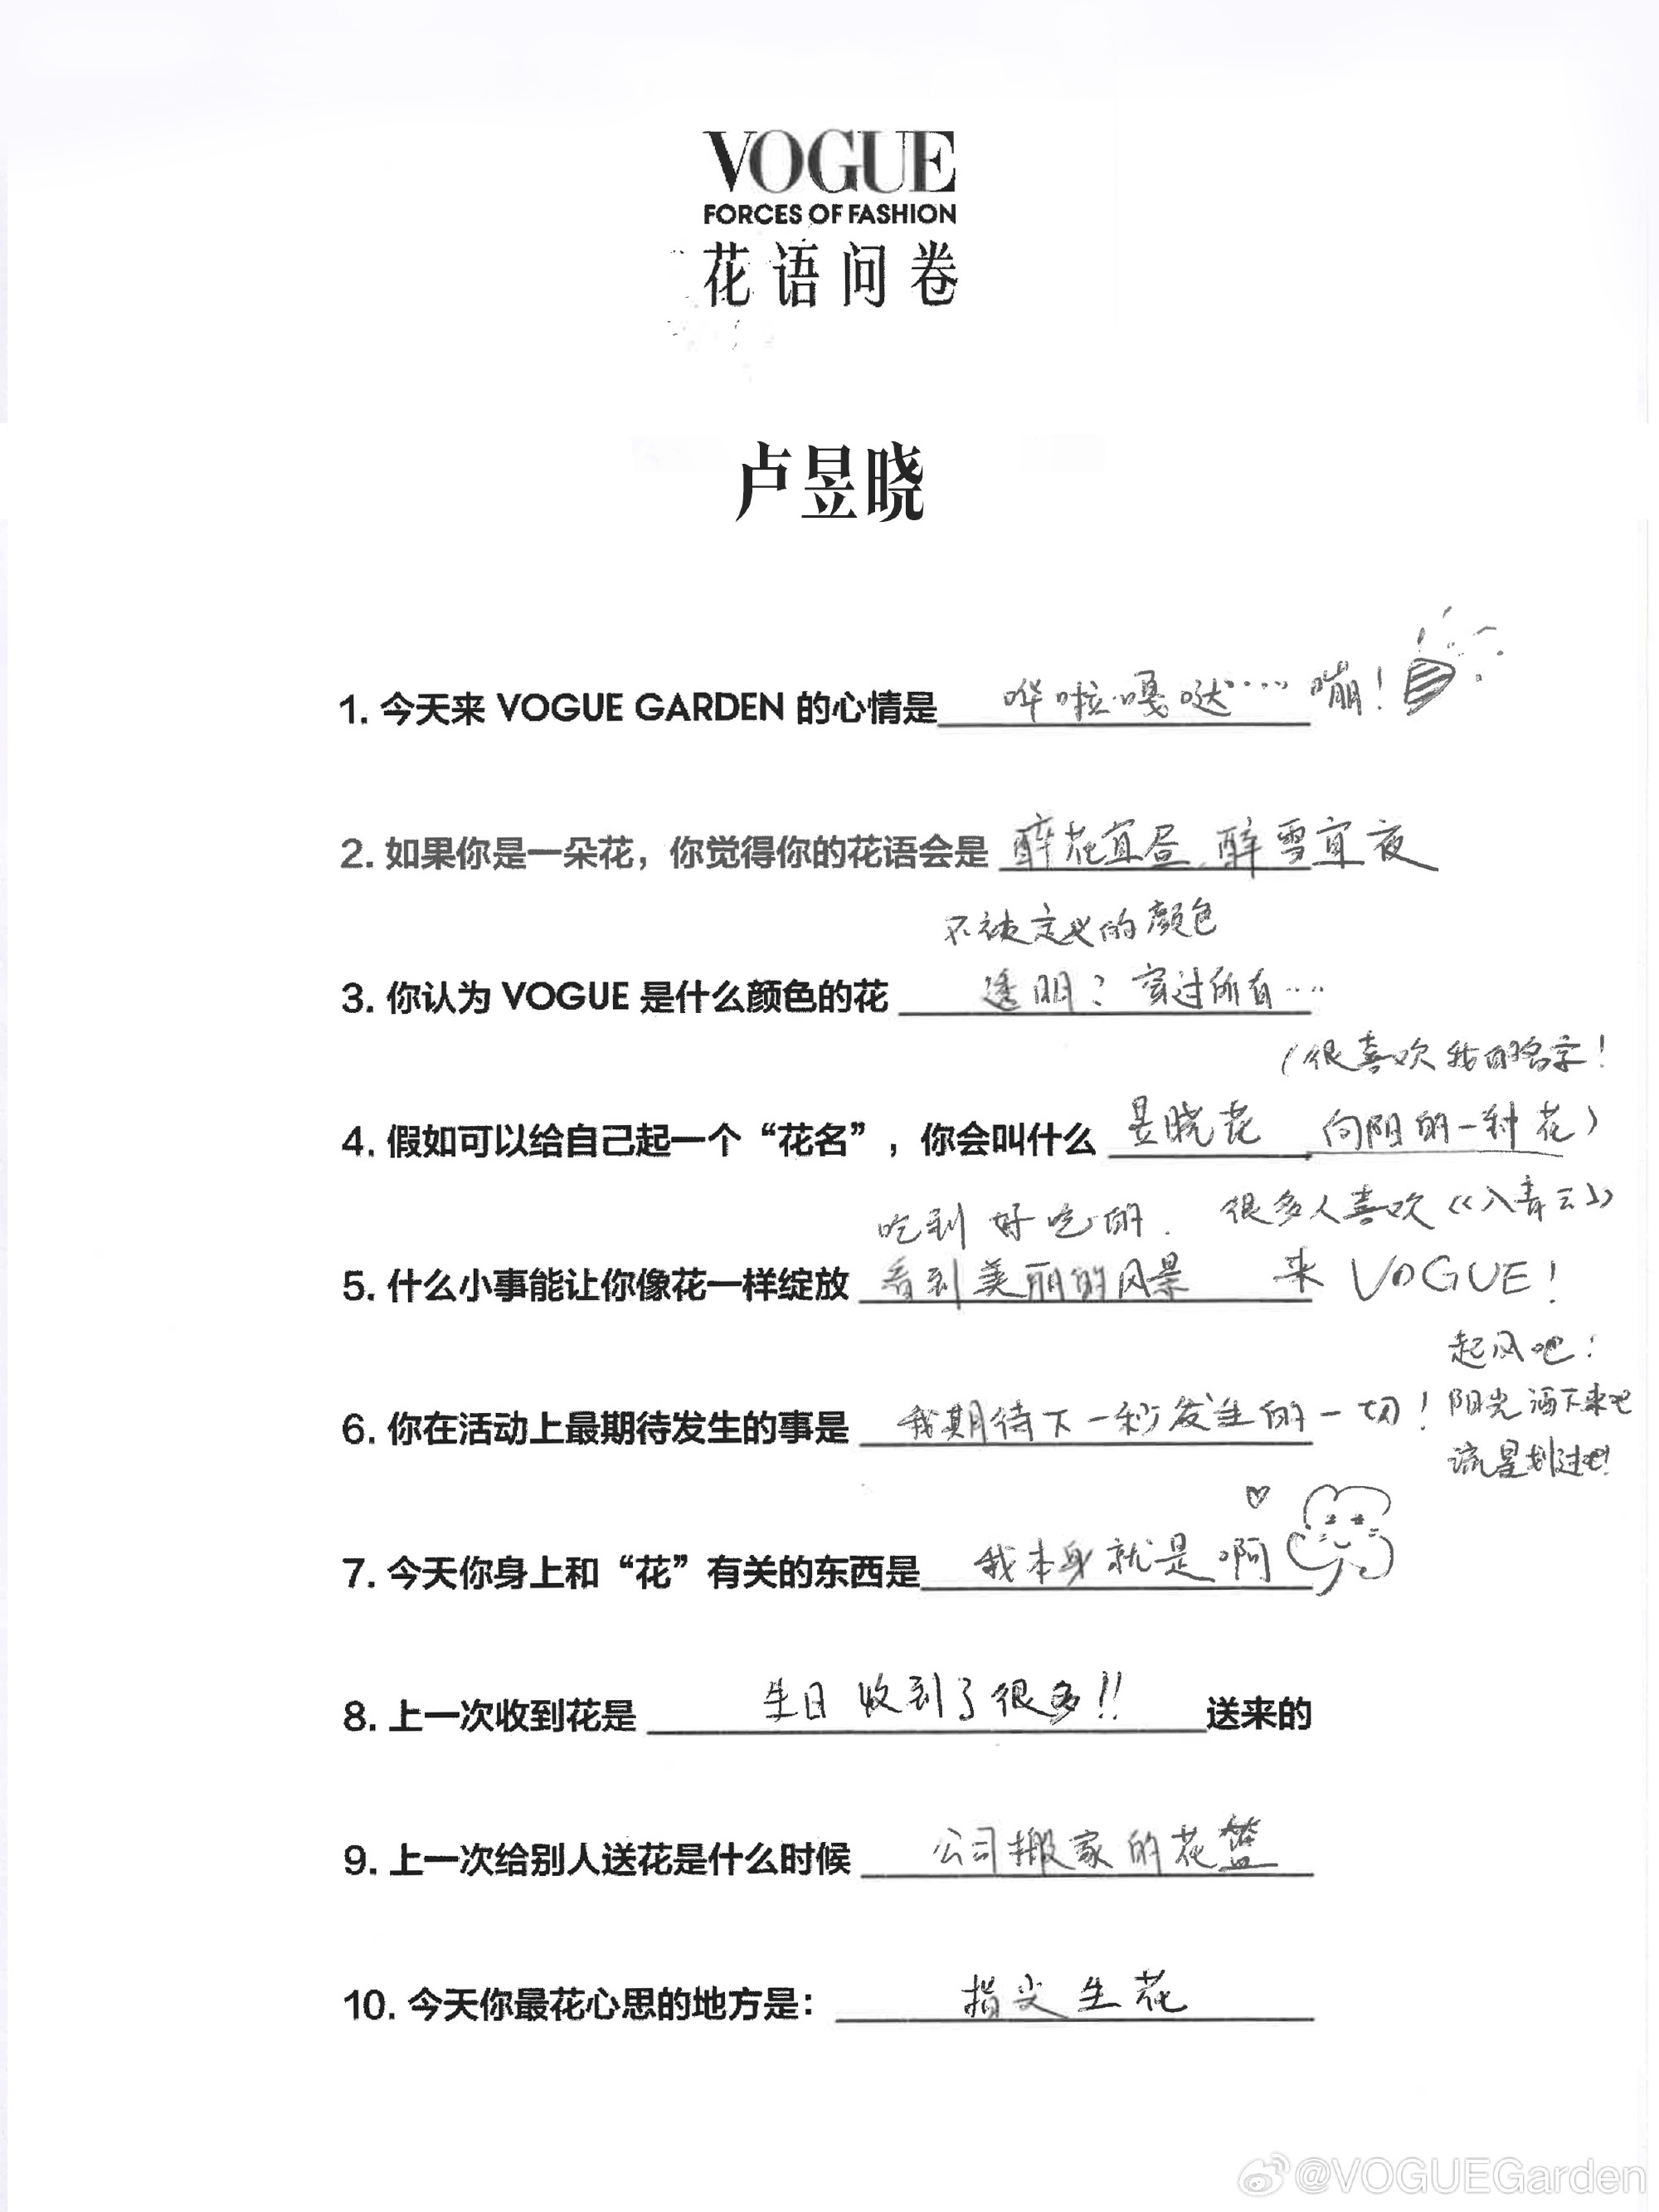 VOGUE
FORCES OF FASHION
花语问卷
卢昱晓
1. 今天来 VOGUE GARDEN 的心情是 哗啦嘎哒…… 嘣！
2. 如果你是一朵花，你觉得你的花语会是 醉花宜昼、醉雪宜夜
不被定义的颜色
3. 你认为 VOGUE 是什么颜色的花 透明？穿过所有……
（很喜欢我的名字！
4. 假如可以给自己起一个“花名”，你会叫什么 昱晓花 向阳的一种花）
吃到好吃的. 很多人喜欢《入青云》
5. 什么小事能让你像花一样绽放 看到美丽的风景 来 VOGUE！
起风吧！
6. 你在活动上最期待发生的事是 我期待下一秒发生的一切！ 阳光洒下来吧
流星划过吧！
7. 今天你身上和“花”有关的东西是 我本身就是啊
8. 上一次收到花是 生日收到了很多！！ 送来的
9. 上一次给别人送花是什么时候 公司搬家的花篮
10. 今天你最花心思的地方是： 指尖生花
@VOGUEGarden